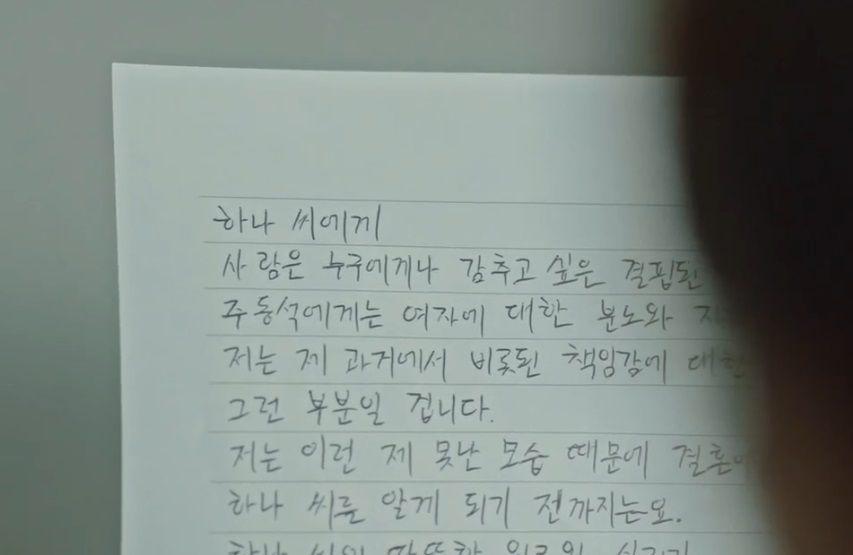 하나 씨에게
사람은 누구에게나 감추고 싶은 결핍된
주동석에게는 여자에 대한 분노와
저는 제 과거에서 비롯된 책임감에 대한
그런 부분일 겁니다.
저는 이런 제 못난 모습 때문에
하나 씨를 알게 되기 전까지는요.
하나 씨의 따뜻한